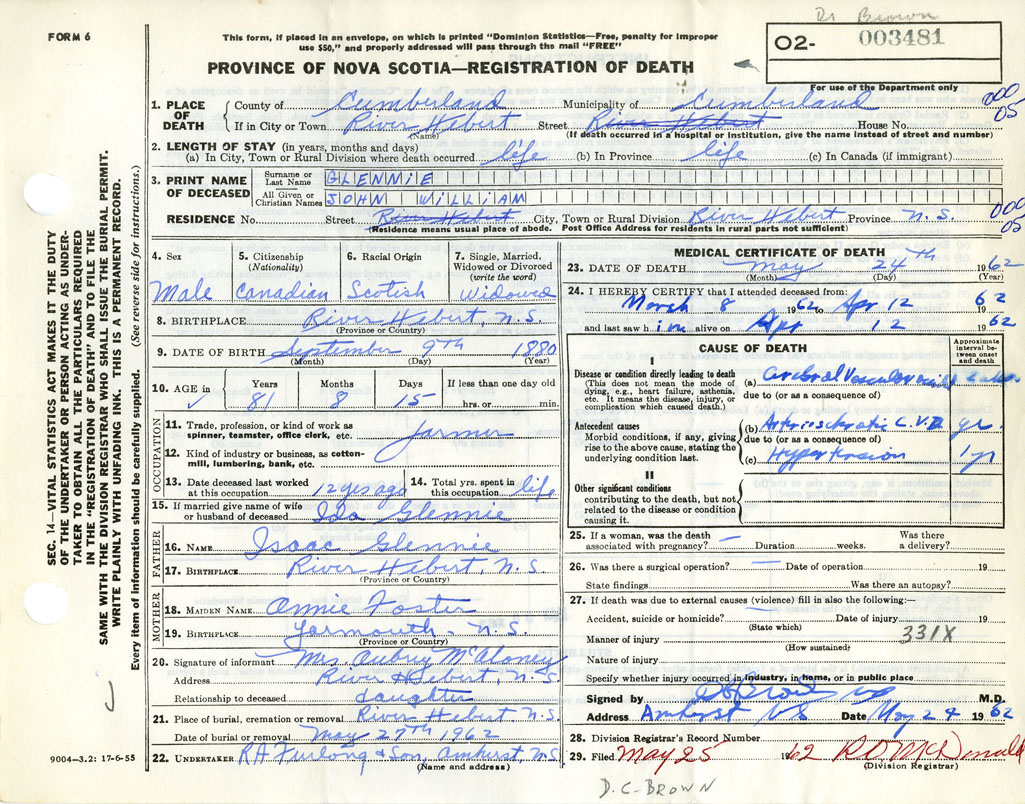 Dr Brown
FORM 6
This form, if placed in an envelope, on which is printed "Dominion Statistics—Free, penalty for improper
use $50," and properly addressed will pass through the mail "FREE"
PROVINCE OF NOVA SCOTIA—REGISTRATION OF DEATH
O2- 003481
For use of the Department only
000
05
1. PLACE OF DEATH
County of Cumberland Municipality of Cumberland
If in City or Town River Hebert Street River Hebert House No.
(Name) (If death occurred in a Hospital or Institution, give the name instead of street and number)
2. LENGTH OF STAY (in years, months and days)
(a) In City, Town or Rural Division where death occurred life (b) In Province life (c) In Canada (if immigrant)
3. PRINT NAME OF DECEASED
Surname or Last Name GLENNIE
All Given or Christian Names JOHN WILLIAM
RESIDENCE No. Street River Hebert City, Town or Rural Division River Hebert Province N.S.
(Residence means usual place of abode. Post Office Address for residents in rural parts not sufficient)
000
05
SEC. 14—VITAL STATISTICS ACT MAKES IT THE DUTY
OF THE UNDERTAKER OR PERSON ACTING AS UNDER-
TAKER TO OBTAIN ALL THE PARTICULARS REQUIRED
IN THE "REGISTRATION OF DEATH" AND TO FILE THE
SAME WITH THE DIVISION REGISTRAR WHO SHALL ISSUE THE BURIAL PERMIT.
WRITE PLAINLY WITH UNFADING INK. THIS IS A PERMANENT RECORD.
Every item of information should be carefully supplied. (See reverse side for instructions.)
4. Sex
Male
5. Citizenship
(Nationality)
Canadian
6. Racial Origin
Scotish
7. Single, Married,
Widowed or Divorced
(write the word)
Widowed
8. BIRTHPLACE River Hebert, N.S.
(Province or Country)
9. DATE OF BIRTH September 9TH 1880
(Month) (Day) (Year)
10. AGE in
Years Months Days If less than one day old
81 8 15 hrs. or min.
OCCUPATION
11. Trade, profession, or kind of work as
spinner, teamster, office clerk, etc. farmer
12. Kind of industry or business, as cotton-
mill, lumbering, bank, etc.
13. Date deceased last worked
at this occupation 12 yrs ago
14. Total yrs. spent in
this occupation life
15. If married give name of wife
or husband of deceased Ida Glennie
FATHER
16. NAME Isaac Glennie
17. BIRTHPLACE River Hebert, N.S.
(Province or Country)
MOTHER
18. MAIDEN NAME Annie Foster
19. BIRTHPLACE Yarmouth - N.S.
(Province or Country)
20. Signature of informant Mrs. Aubrey McAloney
Address River Hebert, N.S
Relationship to deceased daughter
21. Place of burial, cremation or removal River Hebert N.S.
Date of burial or removal May 27TH 1962
22. UNDERTAKER R A Furlong & Son, Amherst, N.S.
(Name and address)
9004—3.2: 17-6-55
MEDICAL CERTIFICATE OF DEATH
23. DATE OF DEATH May 24TH 1962
(Month) (Day) (Year)
24. I HEREBY CERTIFY that I attended deceased from:
March 8 1962 to Apr 12 62
and last saw him alive on Apr 12 1962
CAUSE OF DEATH
Approximate
interval be-
tween onset
and death
I
Disease or condition directly leading to death
(This does not mean the mode of
dying, e.g., heart failure, asthenia,
etc. It means the disease, injury, or
complication which caused death.)
(a) Cerebral Vascular
due to (or as a consequence of)
Antecedent causes
Morbid conditions, if any, giving
rise to the above cause, stating the
underlying condition last.
(b) Arteriosclerotic C.V.D. yr.
due to (or as a consequence of)
(c) Hypertension 1 yr
II
Other significant conditions
contributing to the death, but not
related to the disease or condition
causing it.
25. If a woman, was the death
associated with pregnancy? — Duration weeks. Was there
a delivery?
26. Was there a surgical operation? — Date of operation 19
State findings Was there an autopsy?
27. If death was due to external causes (violence) fill in also the following:—
Accident, suicide or homicide? — Date of injury 19
(State which)
331X
Manner of injury
(How sustained)
Nature of injury
Specify whether injury occurred in industry, in home, or in public place
Signed by D C Brown M.D.
Address Amherst NS Date May 24 1962
28. Division Registrar's Record Number
29. Filed May 25 1962 R D McDonald
(Division Registrar)
D.C-BROWN